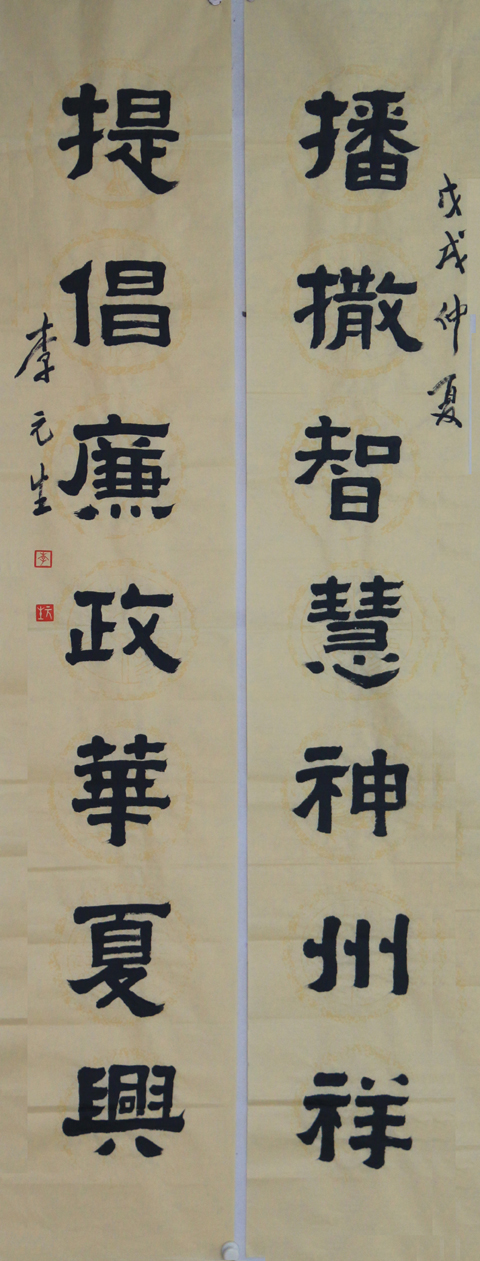 戊戌仲夏
播撒智慧神州祥
提倡廉政華夏興
李元生
李
元生